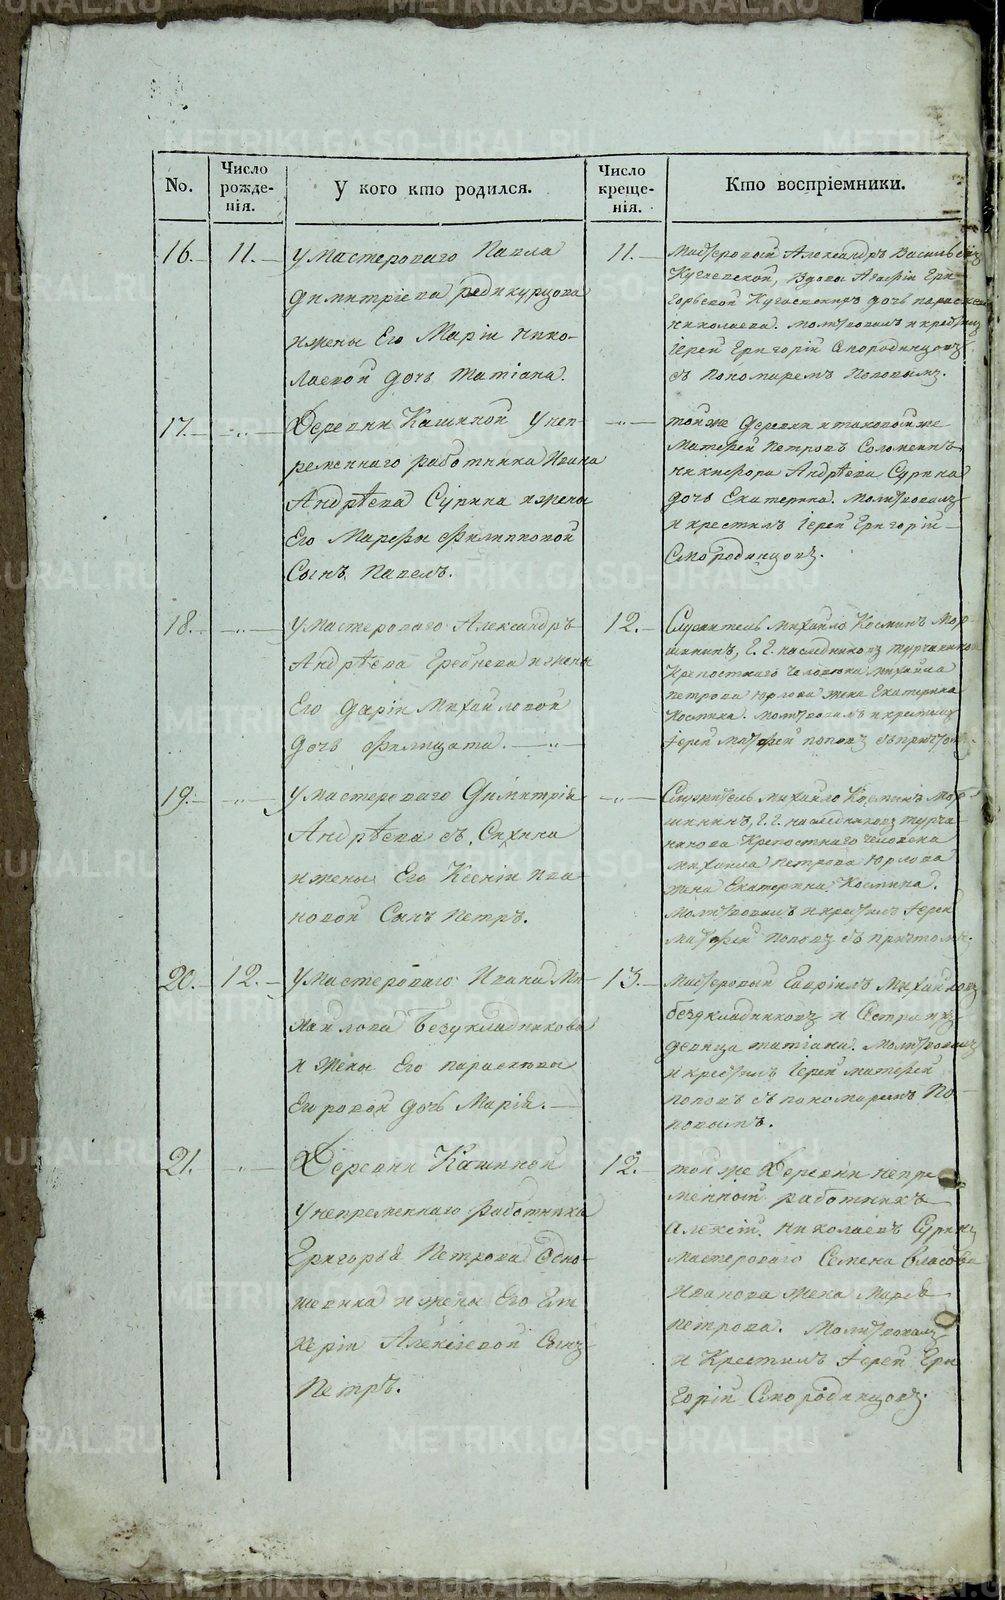 No.
Число рожде-
нія.
У кого кто родился.
Число креще-
нія.
Кто воспріемники.
16. 11.
У Мастероваго Павла
Димитріева Редикурцова
и жены Его Маріи Нико-
лаевой дочь Татіана.
11.
Мастеровый Александръ Васильевъ
Кугаевской, Вдовы Агафіи Гри-
горьевой дочь Параскева
Николаева. Молитвовалъ и крестилъ
Іерей Григорій Смородинцовъ
съ Пономаремъ Поповымъ.
17. -"-
Деревни Кашиной У неп-
ремѣннаго работника Ивана
Андрѣева Сурина и жены
Его Марѳы Филипповой
Сынъ Павелъ.
-"-
той же Деревни
Матѳей Петровъ
Никифора Андрѣева Сурина
дочь Екатерина. Молитвовалъ
и крестилъ Іерей Григорій
Смородинцовъ.
18. -"-
У Мастероваго Александръ
Андрѣева Гребнева и жены
Его Даріи Михайловой
Дочь Филицата. -"-
12.
Служитель Михайло Косминъ Мор-
шининъ, Г. Г. наследниковъ Турчанинова
Крепостнаго Человека Михайла
Петрова Юрлова жена Екатерина
Космина. Молитвовалъ и крестилъ
Іерей Матѳей Поповъ съ причтомъ.
19. -"-
У Мастероваго Димитрія
Андрѣева съ. Сихина
и жены Его Ксеніи Ива
новой Сынъ Петръ.
-"-
Служитель Михайло Косминъ Мор-
шининъ, Г. Г. наследниковъ Турча-
нинова Крепостнаго Человека
Михаила Петрова Юрлова
жена Екатерина Космина.
Молитвовалъ и крестилъ Іерей
Матѳей Поповъ съ причтомъ.
20. 12.
У Мастероваго Ивана Ми-
хайлова Безукладникова
и жены Его Параскевы
Егоровой дочь Марія.
13.
Мастеровый Гавріилъ Михайловъ
Безукладниковъ и Сестра
девица Татіана. Молитвовалъ
и крестилъ Іерей Матѳей
Поповъ съ пономаремъ По-
повымъ.
21. -"-
Деревни Кашиной
У непременнаго работника
Григорья Петрова
и жены Его Гли
керіи Алексіевой Сынъ
Петръ.
12.
той же Деревни непре
менный работникъ
Алексій Николаевъ Суринъ
Мастероваго Семена Власова
Иванова жена Марѳа
Петрова. Молитвовалъ
и Крестилъ Іерей Гри
горій Смородинцовъ.
METRIKI.GASO-URAL.RU